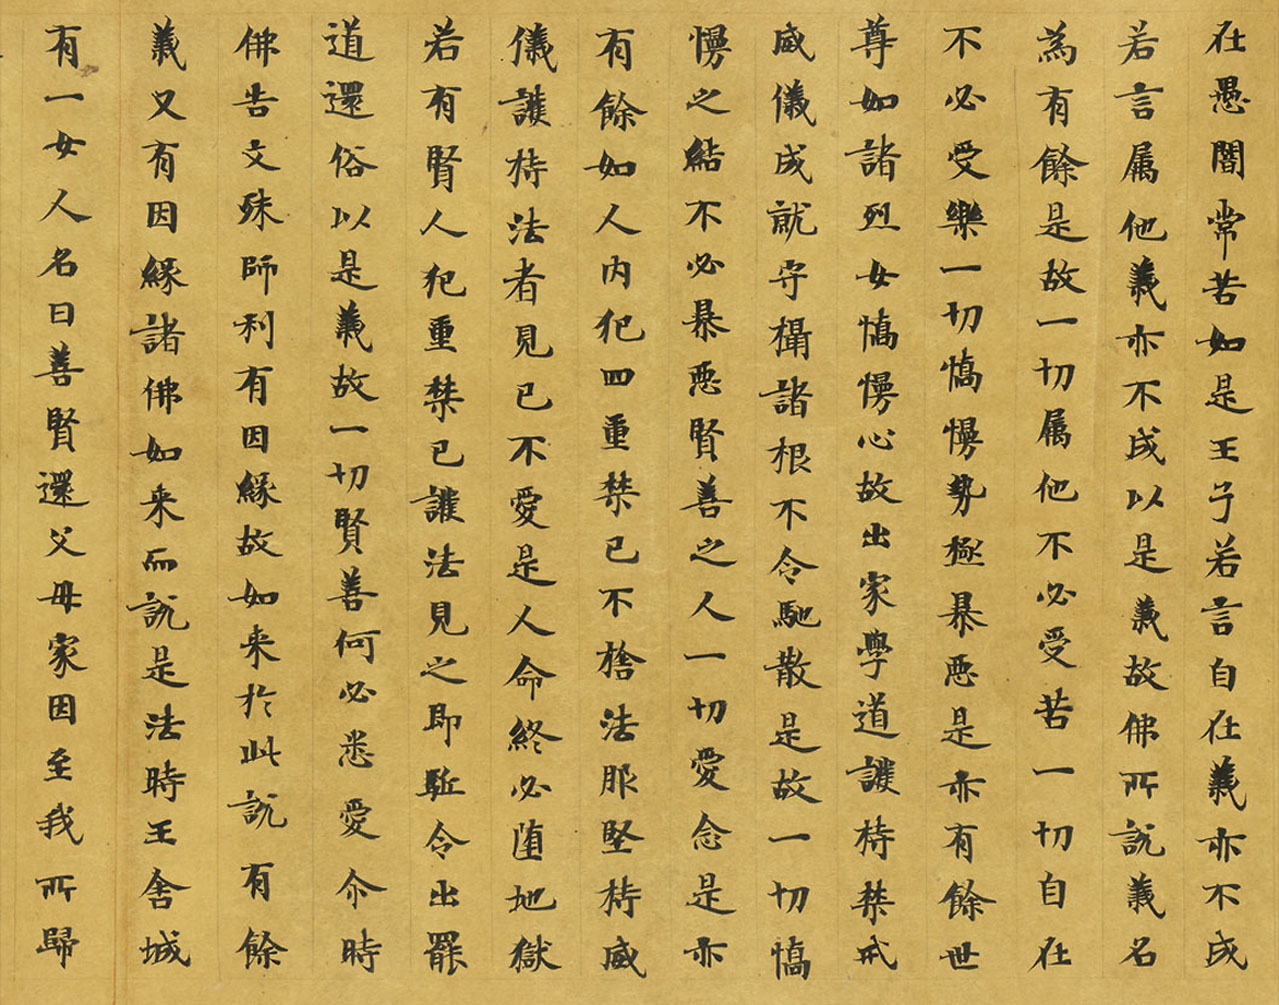 在愚闇常苦如是王子若言自在義亦不成
若言属他義亦不成以是義故佛所説義名
為有餘是故一切属他不必受苦一切自在
不必受樂一切憍慢勢極暴惡是亦有餘世
尊如諸烈女憍慢心故出家學道護持禁戒
威儀成就守攝諸根不令馳散是故一切憍
慢之結不必暴惡賢善之人一切愛念是亦
有餘如人内犯四重禁已不捨法服堅持威
儀護持法者見已不愛是人命終必堕地獄
若有賢人犯重禁已護法見之即駈令出罷
道還俗以是義故一切賢善何必悉愛尒時
佛告文殊師利有因緣故如来於此説有餘
義又有因緣諸佛如来而説是法時王舍城
有一女人名曰善賢還父母家因至我所歸